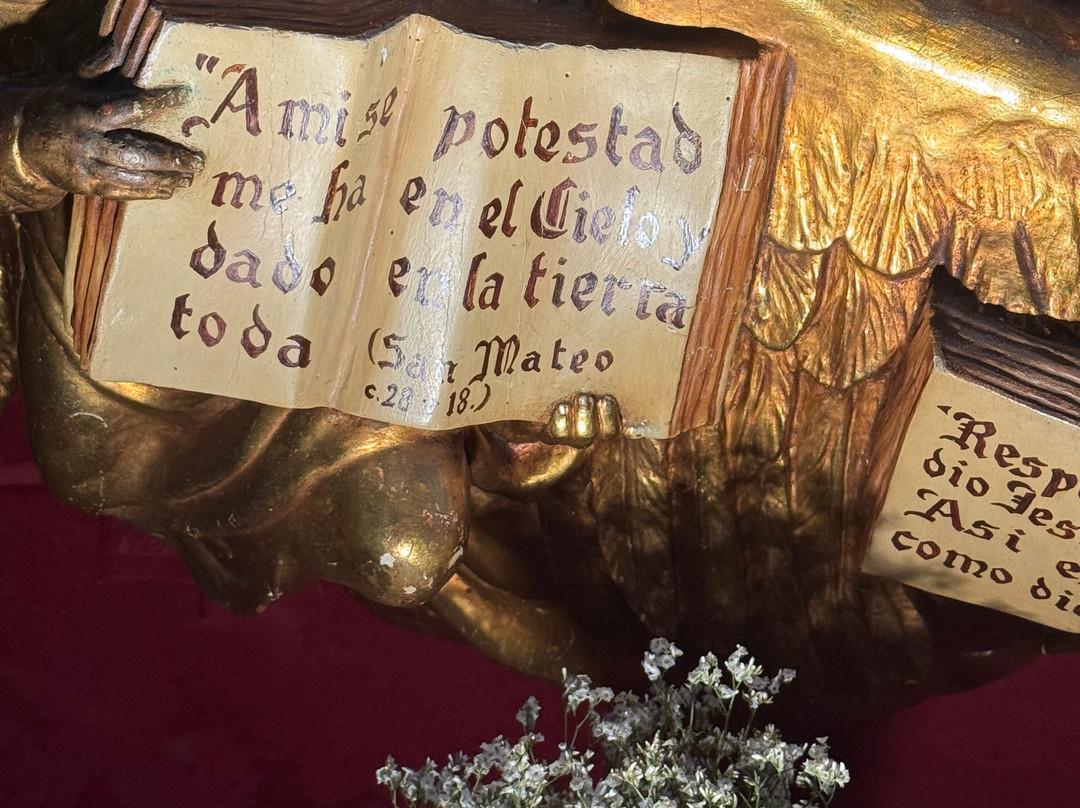 "A mi se potestad
me ha en el Cielo y
dado en la tierra
toda (San Mateo
c. 28 18.)
"Resp
dio Jes
Asi e
como di